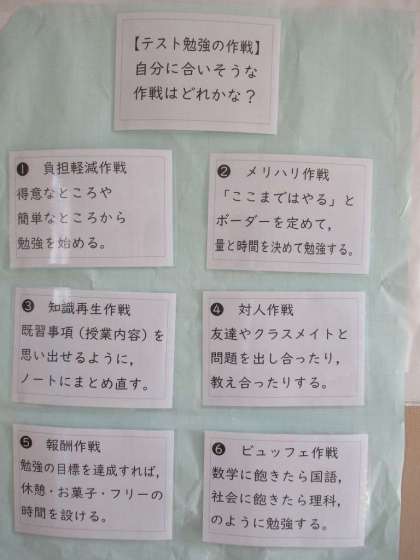 【テスト勉強の作戦】
自分に合いそうな
作戦はどれかな？
❶ 負担軽減作戦
得意なところや
簡単なところから
勉強を始める。
❷ メリハリ作戦
「ここまではやる」と
ボーダーを定めて，
量と時間を決めて勉強する。
❸ 知識再生作戦
既習事項（授業内容）を
思い出せるように，
ノートにまとめ直す。
❹ 対人作戦
友達やクラスメイトと
問題を出し合ったり，
教え合ったりする。
❺ 報酬作戦
勉強の目標を達成すれば，
休憩・お菓子・フリーの
時間を設ける。
❻ ビュッフェ作戦
数学に飽きたら国語，
社会に飽きたら理科，
のように勉強する。